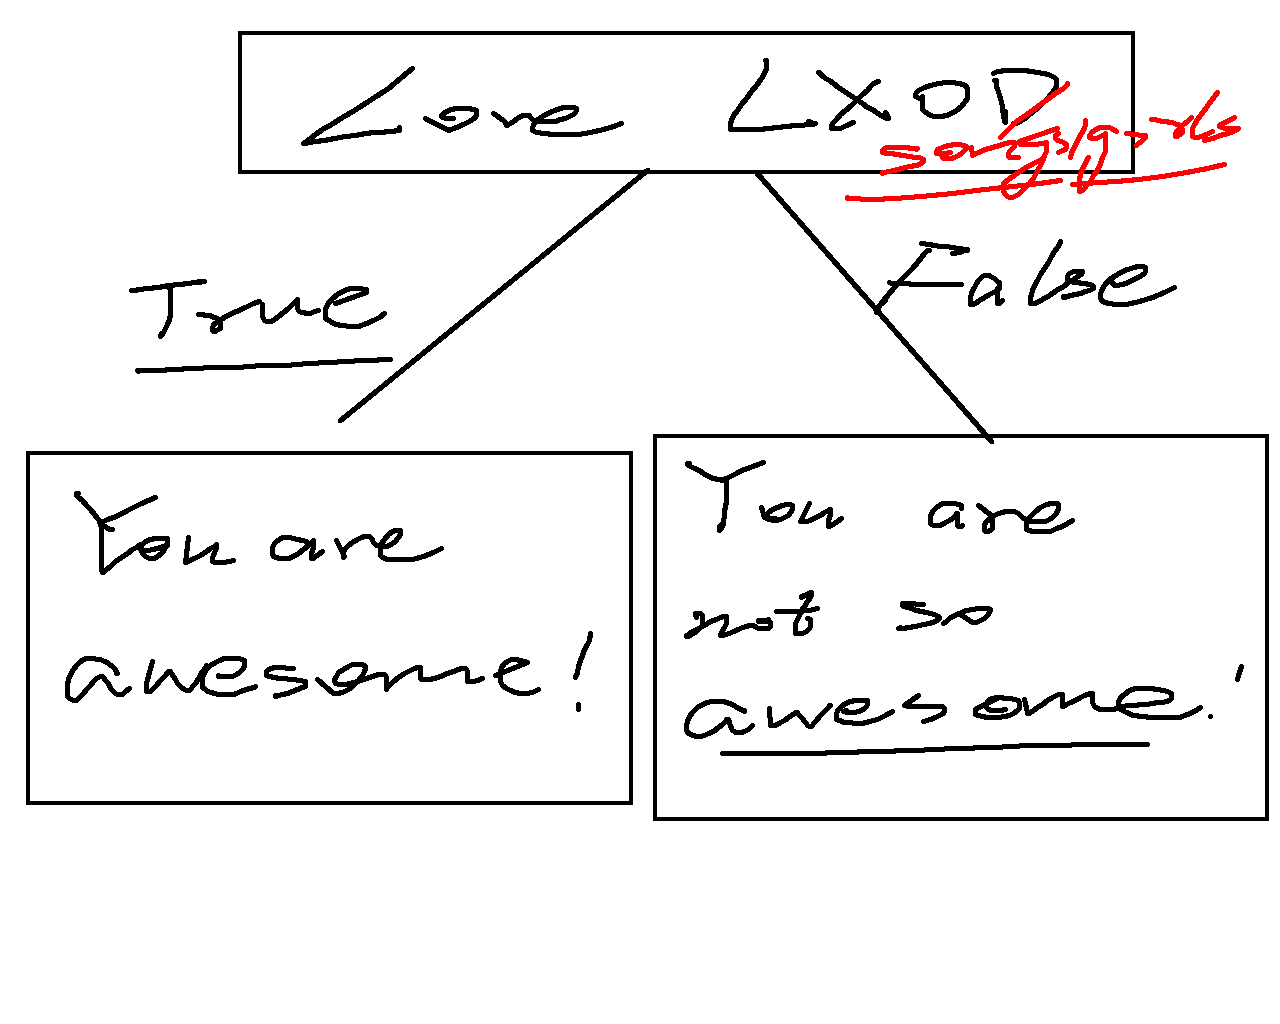 Love LXOD
True
False
You are
awesome!
You are
not so
awesome!